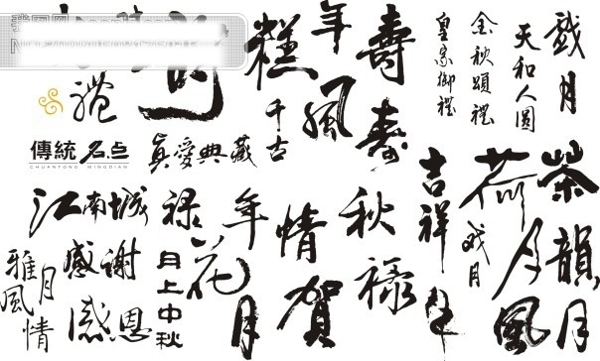 禮
傳統名点
CHUANTONG MINGDIAN
真愛典藏
糕
千古
年
風
壽
壽
皇家御禮
金秋頌禮
天和人圓
戲月
江南城
感謝
感恩
雅風
月情
祿
月上中秋
年
花
月
情
賀
秋
祿
吉祥
年
荷
戲月
月
風
茶
韻
月